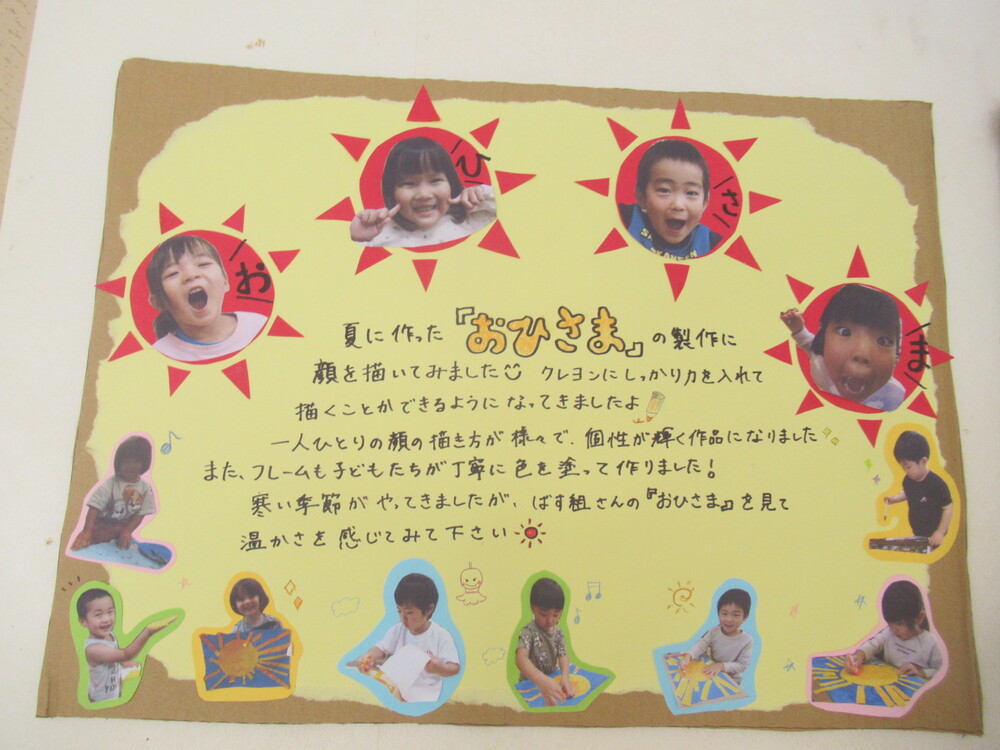 お
ひ
さ
ま
夏に作った『おひさま』の製作に
顔を描いてみました クレヨンにしっかり力を入れて
描くことができるようになってきましたよ
一人ひとりの顔の描き方が様々で、個性が輝く作品になりました
また、フレームも子どもたちが丁寧に色を塗って作りました！
寒い季節がやってきましたが、ばす組さんの『おひさま』を見て
温かさを感じてみて下さい